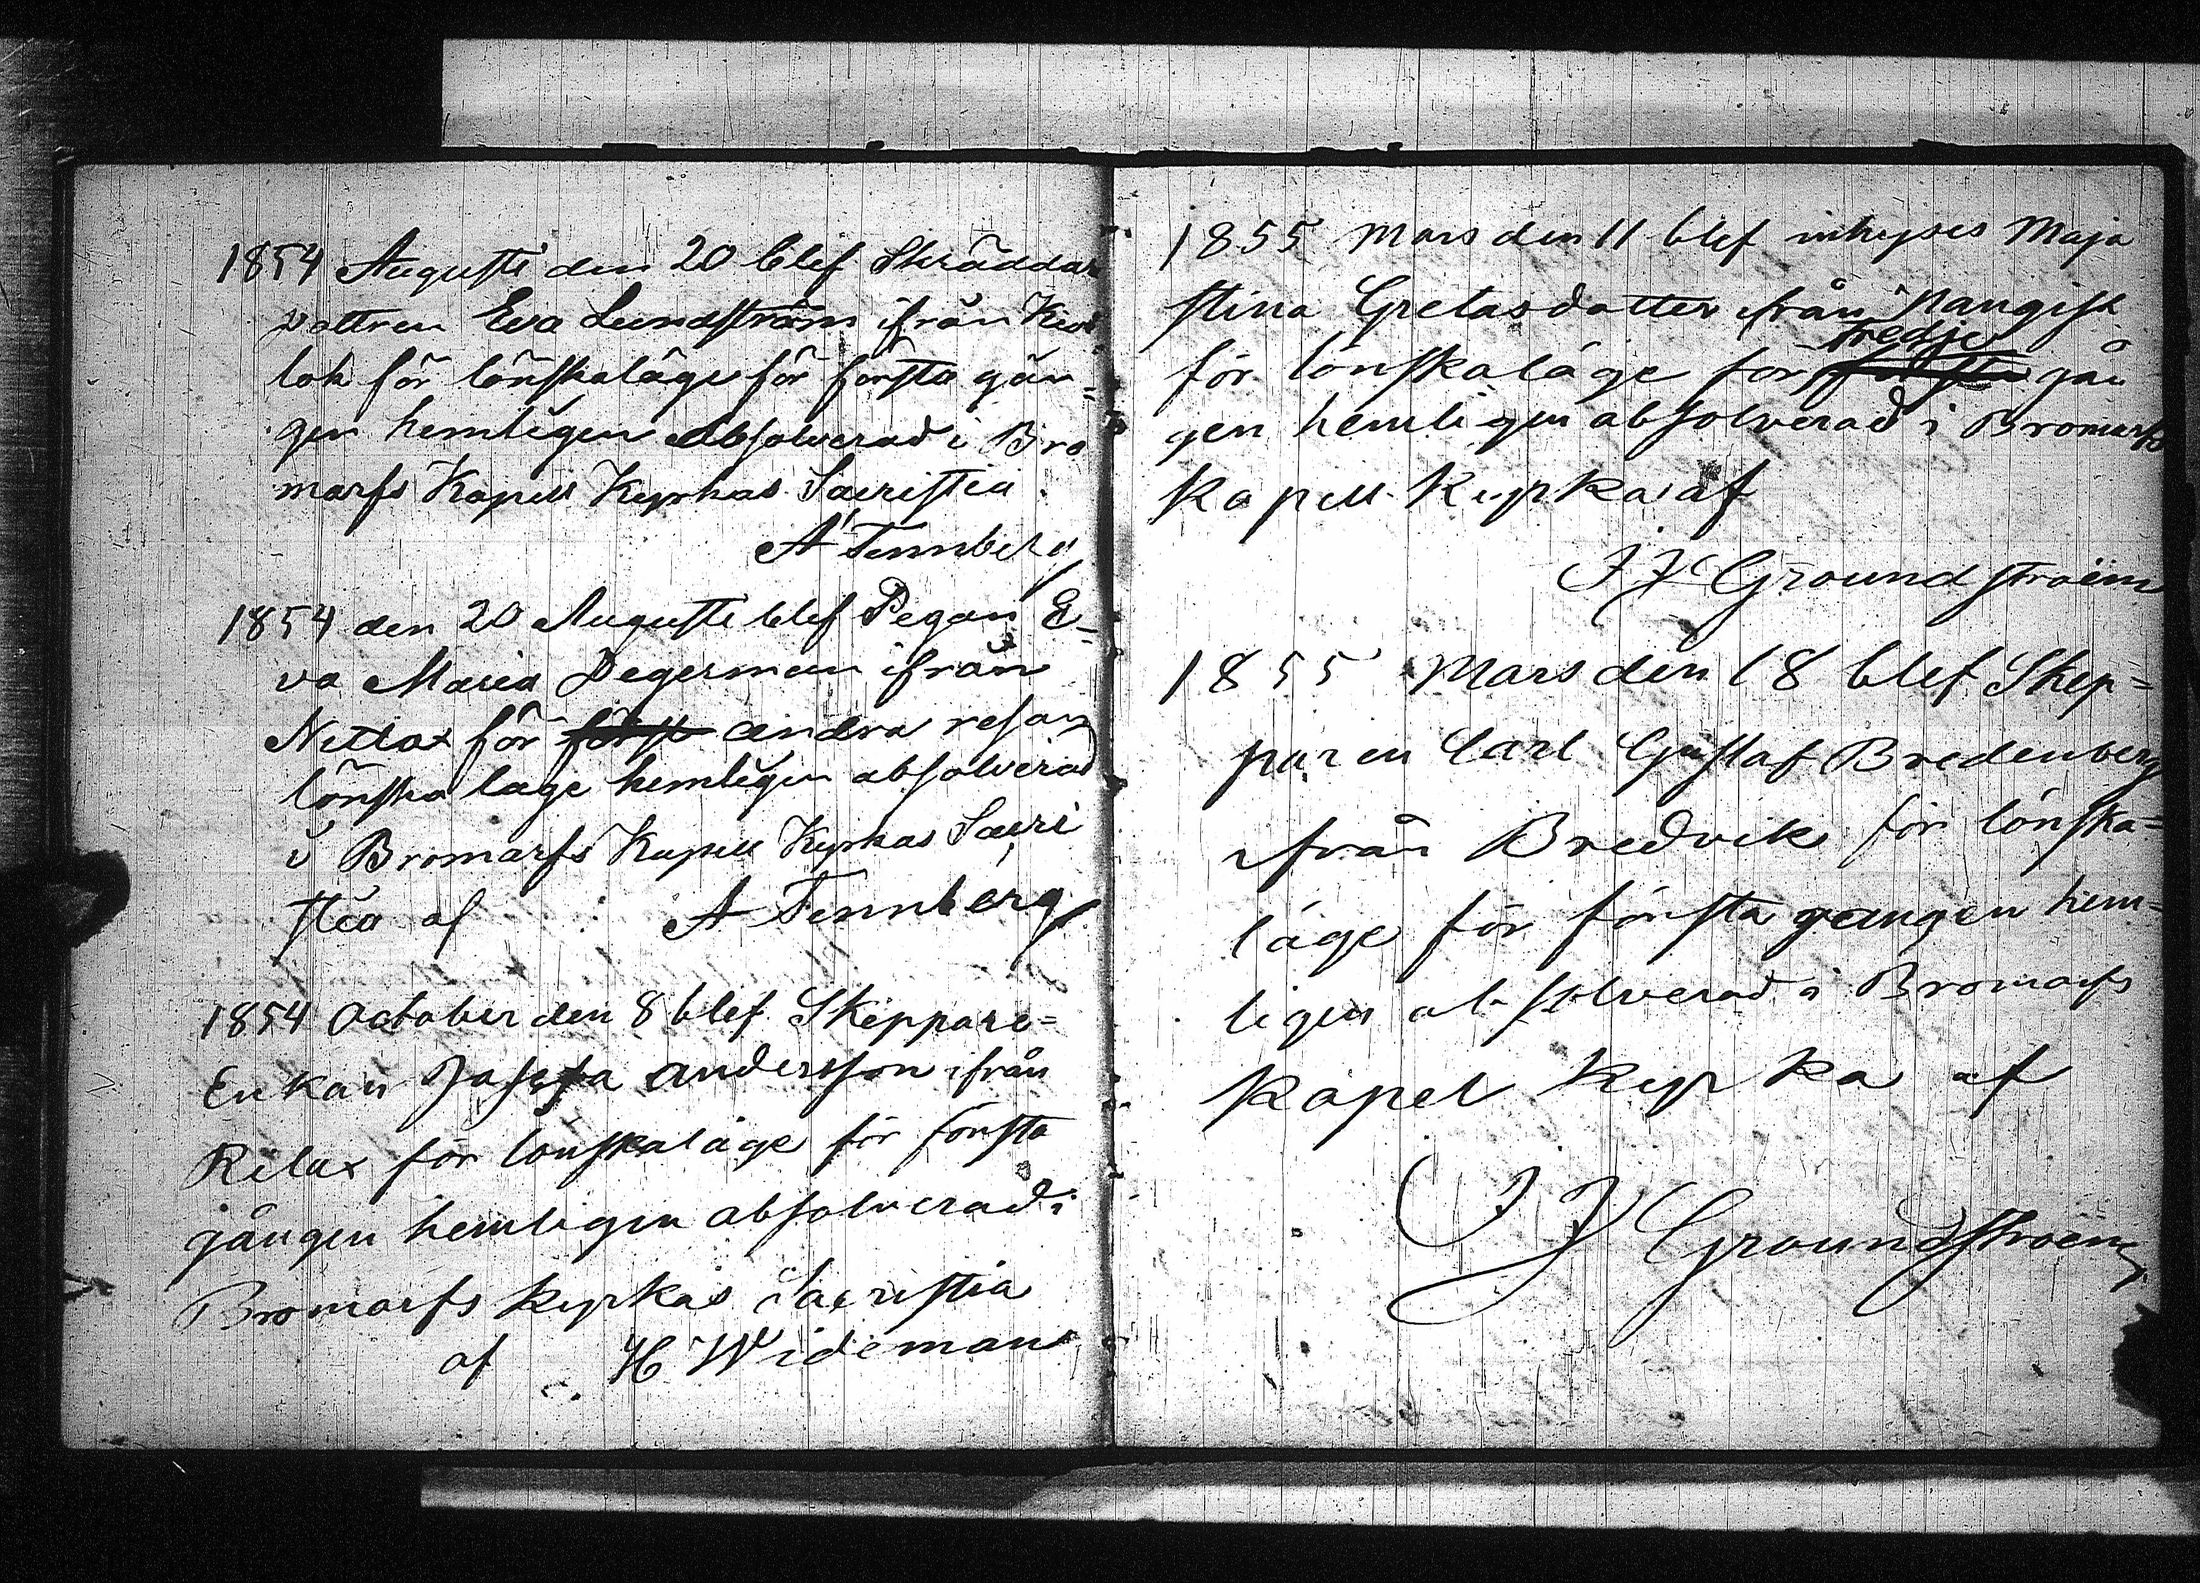 1854 Augusti den 20 blef Skräddar
dottren Eva Lundström ifrån Kis
lok för lönskaläge för första gån-
gen hemligen absolverad i Bro
marfs Kapell Kyrkas Sacristia
A Tennberg
1854 den 20 Augusti blef Pegan E-
va Maria Degerman ifrån
Nitlax för först andra resan
lönska läge hemligen absolverad
i Bromarfs Kapell Kyrkas Sacri
stia af A Tennberg
1854 October den 8 blef Skeppare-
Enkan Josefa andersson ifrån
Rilax för lönskaläge för första
gången hemligen absolverad i
Bromarfs kyrkas Sacristia
af H Wideman
1855 Mars den 11 blef inhyses Maja
stina Gretasdotter ifrån Nangist
tredje
för lönskaläge for första gån
gen hemligen absolverad i Bromarfs
Kapell Kyrka af
J F Groundstroëm
1855 Mars den 18 blef Skep-
paren Carl Gustaf Bredenberg
ifrån Bredvik för lönska-
läge för första gangen hem-
ligen absolverad i Bromarfs
Kapel kyrka af
J F Groundstroëm